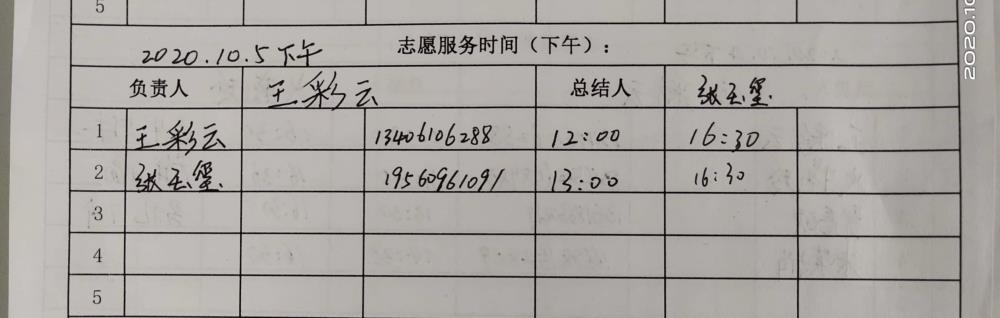 5
2020.10.5下午 志愿服务时间（下午）：
负责人 王彩云 总结人 张玉玺
1 王彩云 13406106288 12:00 16:30
2 张玉玺 19560961091 13:00 16:30
3
4
5
2020.10